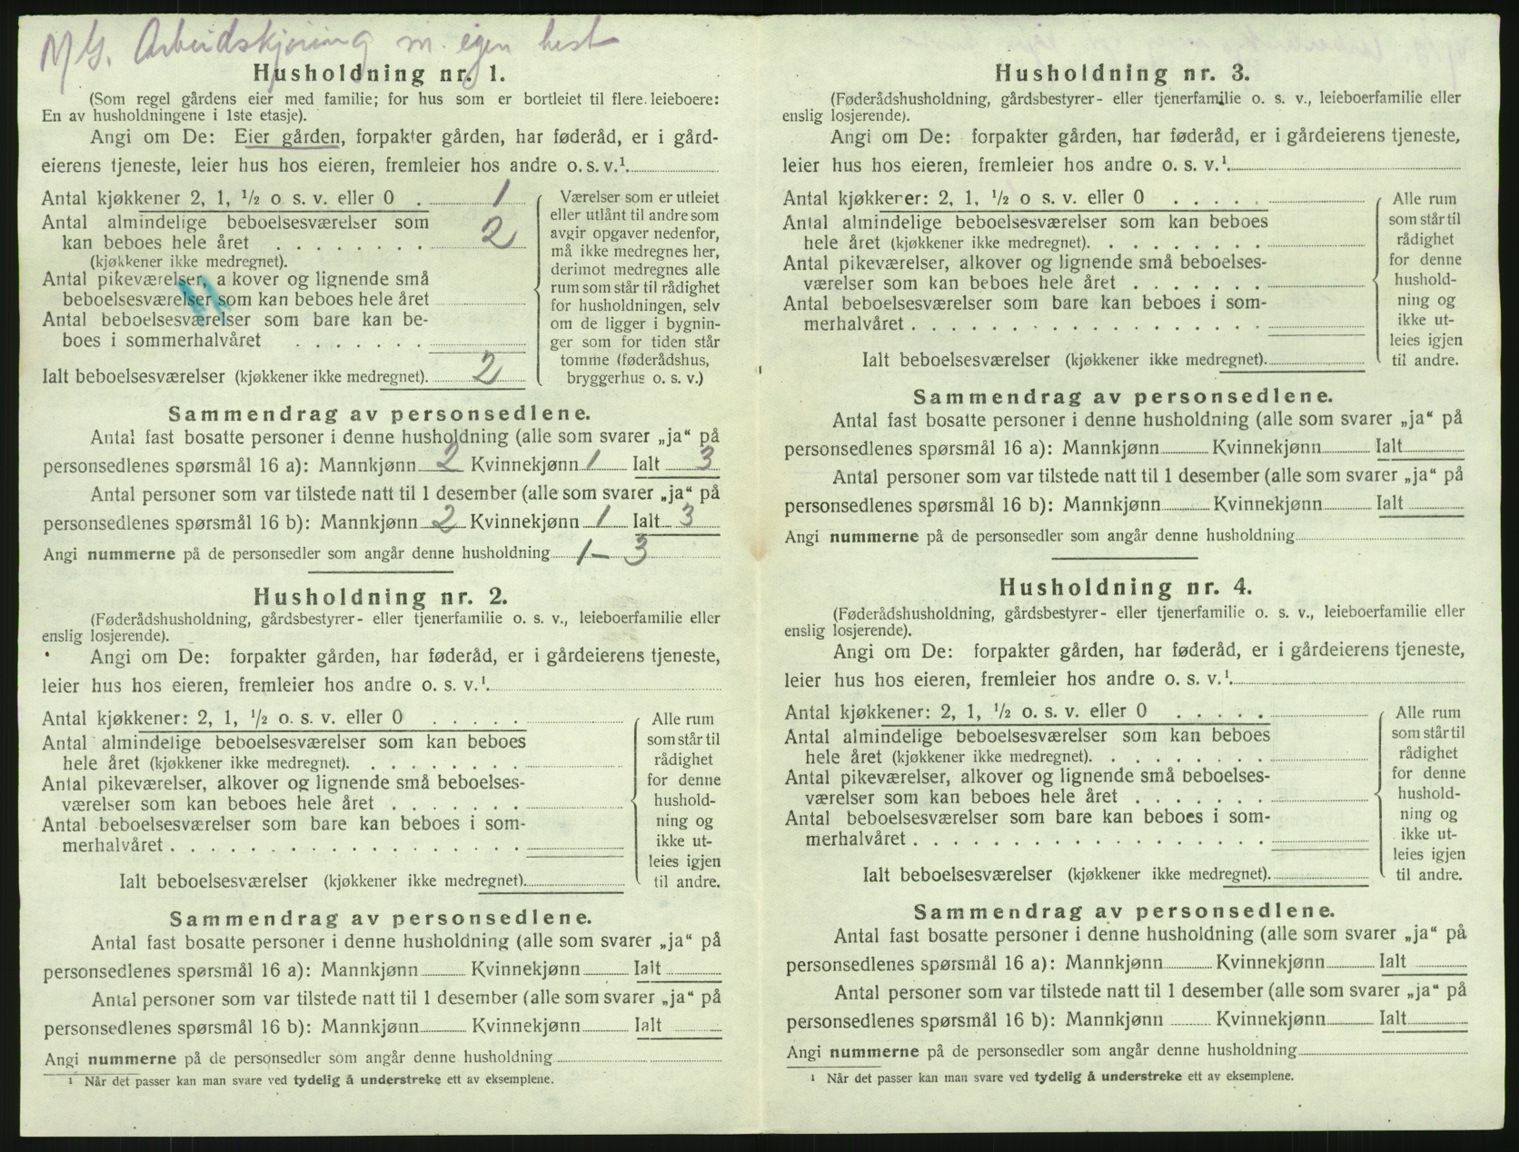 M/G. Arbeidskjøring m. egen hest
Husholdning nr. 1.
(Som regel gårdens eier med familie; for hus som er bortleiet til flere leieboere:
En av husholdningene i 1ste etasje).
Angi om De: Eier gården, forpakter gården, har føderåd, er i gård-
eierens tjeneste, leier hus hos eieren, fremleier hos andre o. s. v.¹.
Antal kjøkkener 2, 1, ½ o s. v. eller 0 . 1
Antal almindelige beboelsesværelser som
kan beboes hele året . . . . . . . . 2
(kjøkkener ikke medregnet).
Antal pikeværelser, a kover og lignende små
beboelsesværelser som kan beboes hele året
Antal beboelsesværelser som bare kan be-
boes i sommerhalvåret . . . . . . .
Ialt beboelsesværelser (kjøkkener ikke medregnet). 2
Værelser som er utleiet
eller utlånt til andre som
avgir opgaver nedenfor,
må ikke medregnes her,
derimot medregnes alle
rum som står til rådighet
for husholdningen, selv
om de ligger i bygnin-
ger som for tiden står
tomme (føderådshus,
bryggerhus o. s. v.)
Sammendrag av personsedlene.
Antal fast bosatte personer i denne husholdning (alle som svarer „ja“ på
personsedlenes spørsmål 16 a): Mannkjønn 2 Kvinnekjønn 1 Ialt 3
Antal personer som var tilstede natt til 1 desember (alle som svarer „ja“ på
personsedlenes spørsmål 16 b): Mannkjønn 2 Kvinnekjønn 1 Ialt 3
Angi nummerne på de personsedler som angår denne husholdning 1 - 3
Husholdning nr. 2.
(Føderådshusholdning, gårdsbestyrer- eller tjenerfamilie o. s. v., leieboerfamilie eller
enslig losjerende).
Angi om De: forpakter gården, har føderåd, er i gårdeierens tjeneste,
leier hus hos eieren, fremleier hos andre o. s. v.¹.
Antal kjøkkener: 2, 1, ½ o. s. v. eller 0 . . . . .
Antal almindelige beboelsesværelser som kan beboes
hele året (kjøkkener ikke medregnet). . . . . . . .
Antal pikeværelser, alkover og lignende små beboelses-
værelser som kan beboes hele året . . . . . . .
Antal beboelsesværelser som bare kan beboes i som-
merhalvåret . . . . . . . . . . . . . . . . . .
Ialt beboelsesværelser (kjøkkener ikke medregnet).
Alle rum
som står til
rådighet
for denne
hushold-
ning og
ikke ut-
leies igjen
til andre.
Sammendrag av personsedlene.
Antal fast bosatte personer i denne husholdning (alle som svarer „ja“ på
personsedlenes spørsmål 16 a): Mannkjønn Kvinnekjønn Ialt
Antal personer som var tilstede natt til 1 desember (alle som svarer „ja“ på
personsedlenes spørsmål 16 b): Mannkjønn Kvinnekjønn Ialt
Angi nummerne på de personsedler som angår denne husholdning
¹ Når det passer kan man svare ved tydelig å understreke ett av eksemplene.
Husholdning nr. 3.
(Føderådshusholdning, gårdsbestyrer- eller tjenerfamilie o. s. v., leieboerfamilie eller
enslig losjerende).
Angi om De: forpakter gården, har føderåd, er i gårdeierens tjeneste,
leier hus hos eieren, fremleier hos andre o. s. v.¹.
Antal kjøkkener: 2, 1, ½ o s. v. eller 0 . . . . .
Antal almindelige beboelsesværelser som kan beboes
hele året (kjøkkener ikke medregnet). . . . . . . .
Antal pikeværelser, alkover og lignende små beboelses-
værelser som kan beboes hele året . . . . . . .
Antal beboelsesværelser som bare kan beboes i som-
merhalvåret . . . . . . . . . . . . . . . . . .
Ialt beboelsesværelser (kjøkkener ikke medregnet).
Alle rum
som står til
rådighet
for denne
hushold-
ning og
ikke ut-
leies igjen
til andre.
Sammendrag av personsedlene.
Antal fast bosatte personer i denne husholdning (alle som svarer „ja“ på
personsedlenes spørsmål 16 a): Mannkjønn Kvinnekjønn Ialt
Antal personer som var tilstede natt til 1 desember (alle som svarer „ja“ på
personsedlenes spørsmål 16 b): Mannkjønn Kvinnekjønn Ialt
Angi nummerne på de personsedler som angår denne husholdning
Husholdning nr. 4.
(Føderådshusholdning, gårdsbestyrer- eller tjenerfamilie o. s. v., leieboerfamilie eller
enslig losjerende).
Angi om De: forpakter gården, har føderåd, er i gårdeierens tjeneste,
leier hus hos eieren, fremleier hos andre o. s. v.¹.
Antal kjøkkener: 2, 1, ½ o. s. v. eller 0 . . . . .
Antal almindelige beboelsesværelser som kan beboes
hele året (kjøkkener ikke medregnet). . . . . . . .
Antal pikeværelser, alkover og lignende små beboelses-
værelser som kan beboes hele året . . . . . . .
Antal beboelsesværelser som bare kan beboes i som-
merhalvåret . . . . . . . . . . . . . . . . . .
Ialt beboelsesværelser (kjøkkener ikke medregnet).
Alle rum
som står til
rådighet
for denne
hushold-
ning og
ikke ut-
leies igjen
til andre.
Sammendrag av personsedlene.
Antal fast bosatte personer i denne husholdning (alle som svarer „ja“ på
personsedlenes spørsmål 16 a): Mannkjønn Kvinnekjønn Ialt
Antal personer som var tilstede natt til 1 desember (alle som svarer „ja“ på
personsedlenes spørsmål 16 b): Mannkjønn Kvinnekjønn Ialt
Angi nummerne på de personsedler som angår denne husholdning
¹ Når det passer kan man svare ved tydelig å understreke ett av eksemplene.